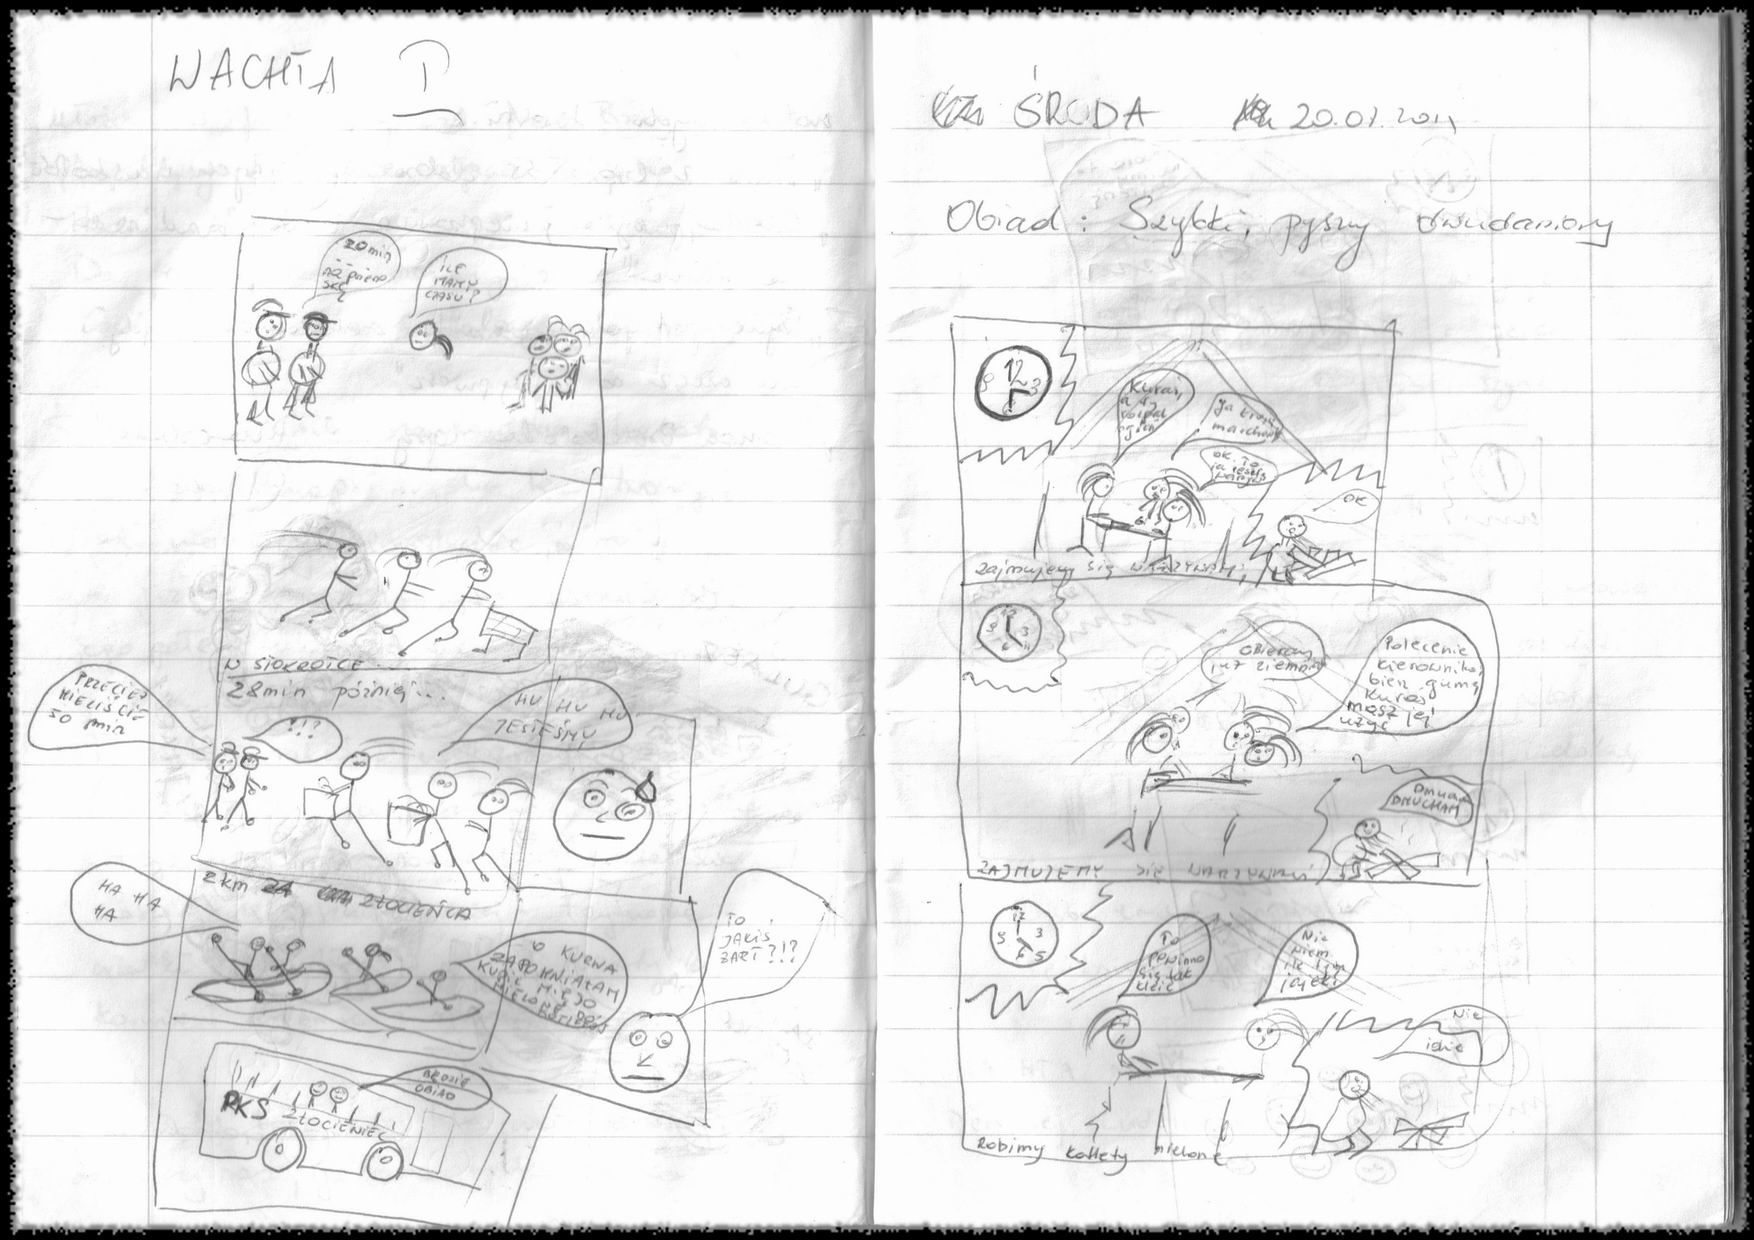 WACHTA I
20 min
na
ILE
MAMY
CZASU?
W STOKROTCE...
28min później...
PRZECIEŻ
MIELIŚCIE
30 min
?!?
HU HU HU
JESTEŚMY
2 km ZA ZŁOCIEŃCA
HA HA
HA
O KURNA
ZAPOMNIAŁAM
KUPIĆ MIĘSO
MIELONE
TO
JAKIŚ
ŻART?!?
BĘDZIE
OBIAD
PKS ZŁOCIENIEC
ŚRODA 20.07.2011
Obiad: Szybki, pyszny dwudaniowy
12
3
9
6
Kuraś,
a ty
rozpal
ogień
Ja kroję
marchew
OK. To
ja
OK
Zajmujemy się WARZYWAMI
12
9 3
6
OBIERAM
już ziemniaki
Polecenie
kierownika,
bierz gumę
Kuraś
masz jej
użyć
DMUCHAM
DMUCHAM
ZAJMUJEMY SIĘ WARZYWAMI
12
9 3
6 5
To
powinno
się tak
kleić
Nie
wiem
ile tych
jajek
Nie
idzie
Robimy kotlety mielone